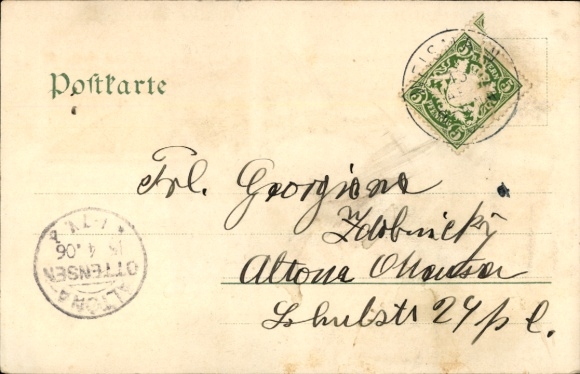 Postkarte
5 5 5 5
Frl. Georgiana
Zdobnický
Altona Ottensen
Schulstr 24 p l.
ALTONA
OTTENSEN
4.06